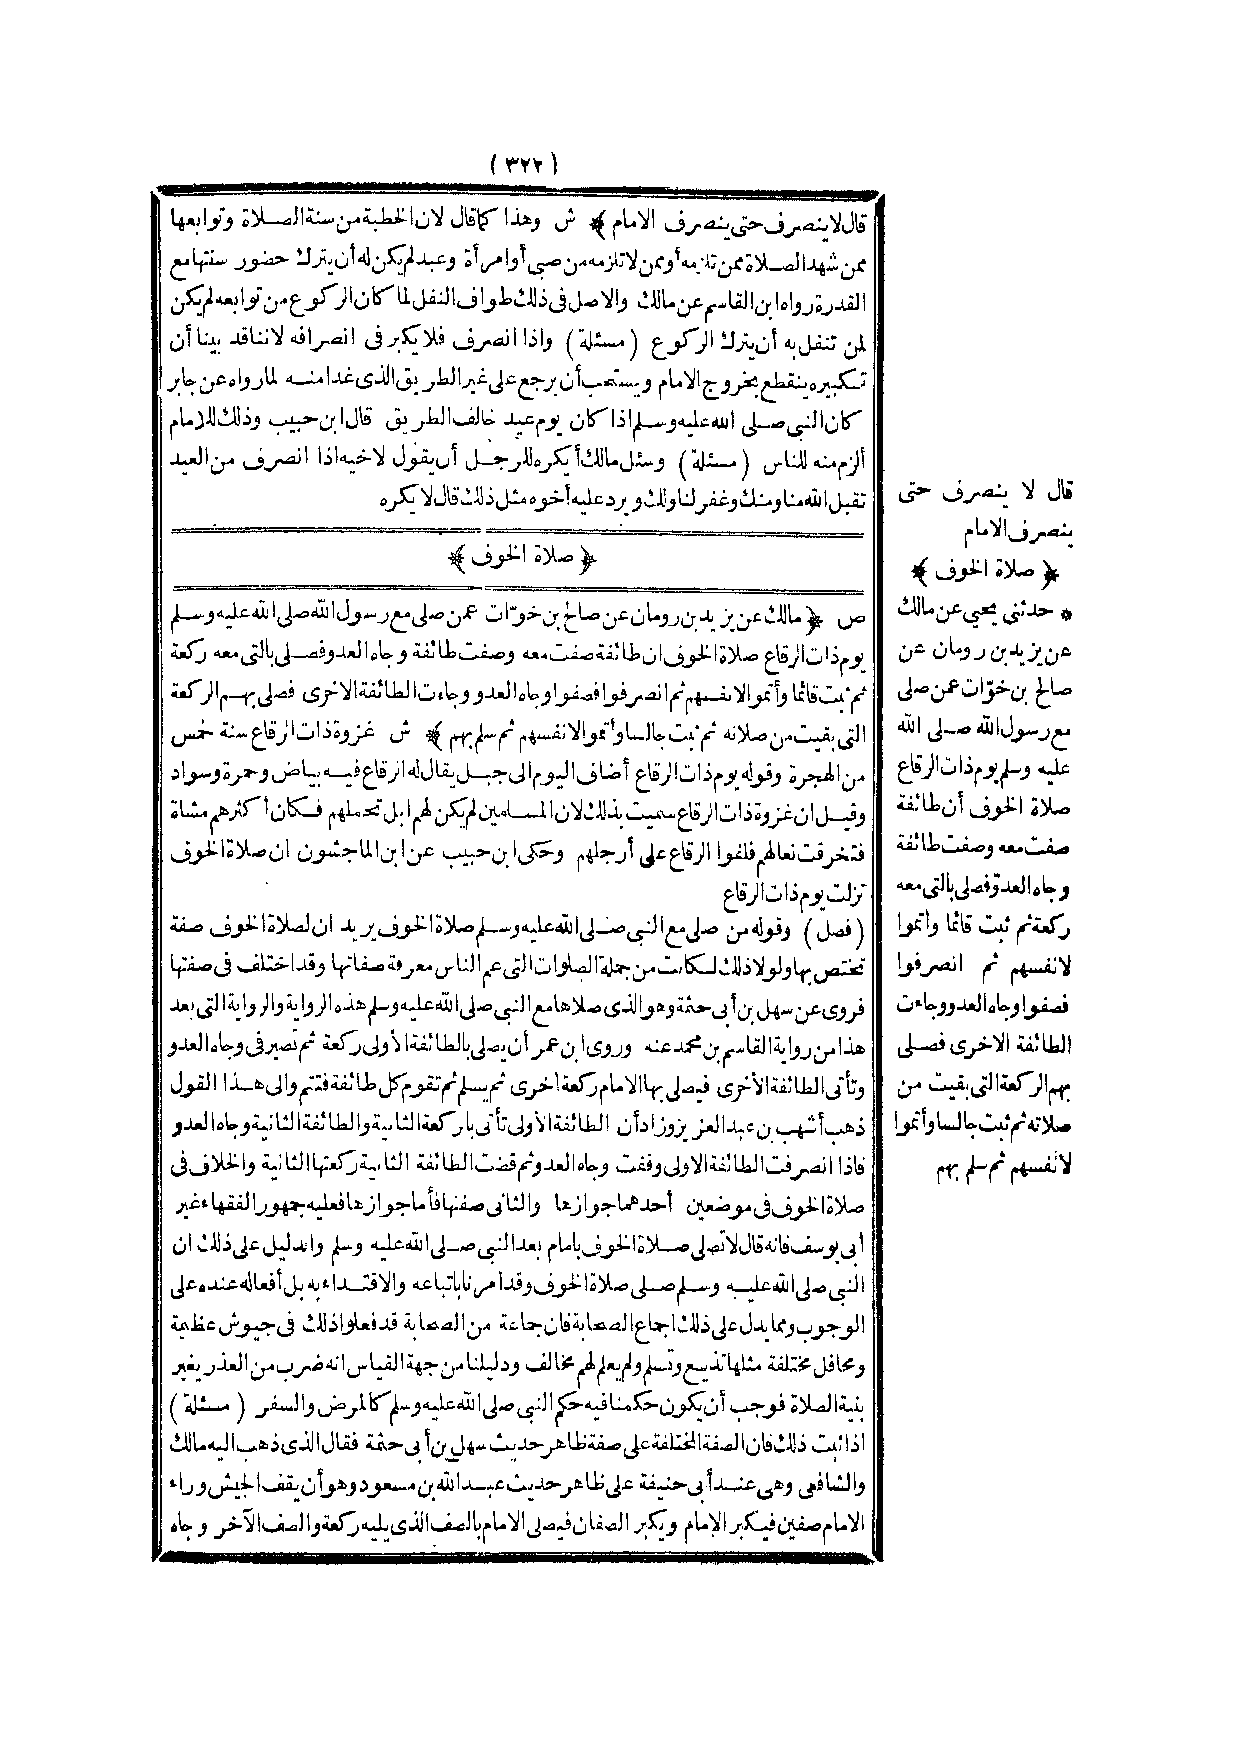 ( ٣٢٢ )
قال لا ينصرف حتى ينصرف الامام ﴾ ش وهذا كما قال لان الخطبة من سنة الصلاة وتوابعها
ممن شهد الصلاة ممن تلزمه أو ممن لا تلزمه من صبى أو امرأة وعبد لم يكن له أن يترك حضور سنتها مع
القدرة رواه ابن القاسم عن مالك والاصل فى ذلك طواف النفل لما كان الركوع من توابعه لم يكن
لمن تنفل به أن يترك الركوع ( مسئلة ) واذا انصرف فلا يكبر فى انصرافه لاننا قد بينا أن
تكبيره ينقطع بخروج الامام ويستحب أن يرجع على غير الطريق الذى غدا منه لما رواه عن جابر
كان النبى صلى الله عليه وسلم اذا كان يوم عيد خالف الطريق قال ابن حبيب وذلك للامام
ألزم منه للناس ( مسئلة ) وسئل مالك أيكره للرجل أن يقول لاخيه اذا انصرف من العيد
تقبل الله منا ومنك وغفر لنا ولك ويرد عليه أخوه مثل ذلك قال لا يكره
﴿ صلاة الخوف ﴾
ص ﴿ مالك عن يزيد بن رومان عن صالح بن خوّات عمن صلى مع رسول الله صلى الله عليه وسلم
يوم ذات الرقاع صلاة الخوف ان طائفة صفت معه وصفت طائفة وجاه العدو فصلى بالتى معه ركعة
ثم ثبت قائما وأتموا لانفسهم ثم انصرفوا فصفوا وجاه العدو وجاءت الطائفة الاخرى فصلى بهم الركعة
التى بقيت من صلاته ثم ثبت جالسا وأتموا لانفسهم ثم سلم بهم ﴾ ش غزوة ذات الرقاع سنة خمس
من الهجرة وقوله يوم ذات الرقاع أضاف اليوم الى جبل يقال له الرقاع فيه بياض وحمرة وسواد
وقيل ان غزوة ذات الرقاع سميت بذلك لان المسلمين لم يكن لهم ابل تحملهم فكان أكثرهم مشاة
فتخرقت نعالهم فلفوا الرقاع على أرجلهم وحكى ابن حبيب عن ابن الماجشون ان صلاة الخوف
نزلت يوم ذات الرقاع
( فصل ) وقوله من صلى مع النبى صلى الله عليه وسلم صلاة الخوف يريد ان لصلاة الخوف صفة
تختص بها ولولا ذلك لكانت من جملة الصلوات التى عم الناس معرفة صفاتها وقد اختلف فى صفتها
فروى عن سهل بن أبى حثمة وهو الذى صلاها مع النبى صلى الله عليه وسلم هذه الرواية والرواية التى بعد
هذا من رواية القاسم بن محمد عنه وروى ابن عمر أن يصلى بالطائفة الأولى ركعة ثم تصير فى وجاه العدو
وتأتى الطائفة الأخرى فيصلى بها الامام ركعة اخرى ثم يسلم ثم تقوم كل طائفة فتتم والى هذا القول
ذهب أشهب بن عبد العزيز وزاد أن الطائفة الأولى تأتى بالركعة الثانية والطائفة الثانية وجاه العدو
فاذا انصرفت الطائفة الاولى وقفت وجاه العدو ثم قضت الطائفة الثانية ركعتها الثانية والخلاف فى
صلاة الخوف فى موضعين أحدهما جوازها والثانى صفتها فأما جوازها فعليه جمهور الفقهاء غير
أبى يوسف فانه قال لا تصلى صلاة الخوف بامام بعد النبى صلى الله عليه وسلم والدليل على ذلك ان
النبى صلى الله عليه وسلم صلى صلاة الخوف وقد امرنا باتباعه والاقتداء به بل أفعاله عنده على
الوجوب ومما يدل على ذلك اجماع الصحابة فان جماعة من الصحابة قد فعلوا ذلك فى جيوش عظيمة
ومحافل مختلفة مثلها تذيع وتسلم ولم يعلم لهم مخالف ودليلنا من جهة القياس انه ضرب من العذر يغير
بنية الصلاة فوجب أن يكون حكمنا فيه حكم النبى صلى الله عليه وسلم كالمرض والسفر ( مسئلة )
اذا ثبت ذلك فان الصفة المختلفة على صفة ظاهر حديث سهل بن أبى حثمة فقال الذى ذهب اليه مالك
والشافعى وهى عند أبى حنيفة على ظاهر حديث عبد الله بن مسعود وهو أن يقف الجيش وراء
الامام صفين فيكبر الامام ويكبر الصفان فيصلى الامام بالصف الذى يليه ركعة والصف الآخر وجاه
قال لا ينصرف حتى
ينصرف الامام
﴿ صلاة الخوف ﴾
* حدثنى يحيى عن مالك
عن يزيد بن رومان عن
صالح بن خوّات عمن صلى
مع رسول الله صلى الله
عليه وسلم يوم ذات الرقاع
صلاة الخوف أن طائفة
صفت معه وصفت طائفة
وجاه العدوّ فصلى بالتى معه
ركعة ثم ثبت قائما وأتموا
لانفسهم ثم انصرفوا
فصفوا وجاه العدو وجاءت
الطائفة الاخرى فصلى
بهم الركعة التى بقيت من
صلاته ثم ثبت جالسا وأتموا
لأنفسهم ثم سلم بهم